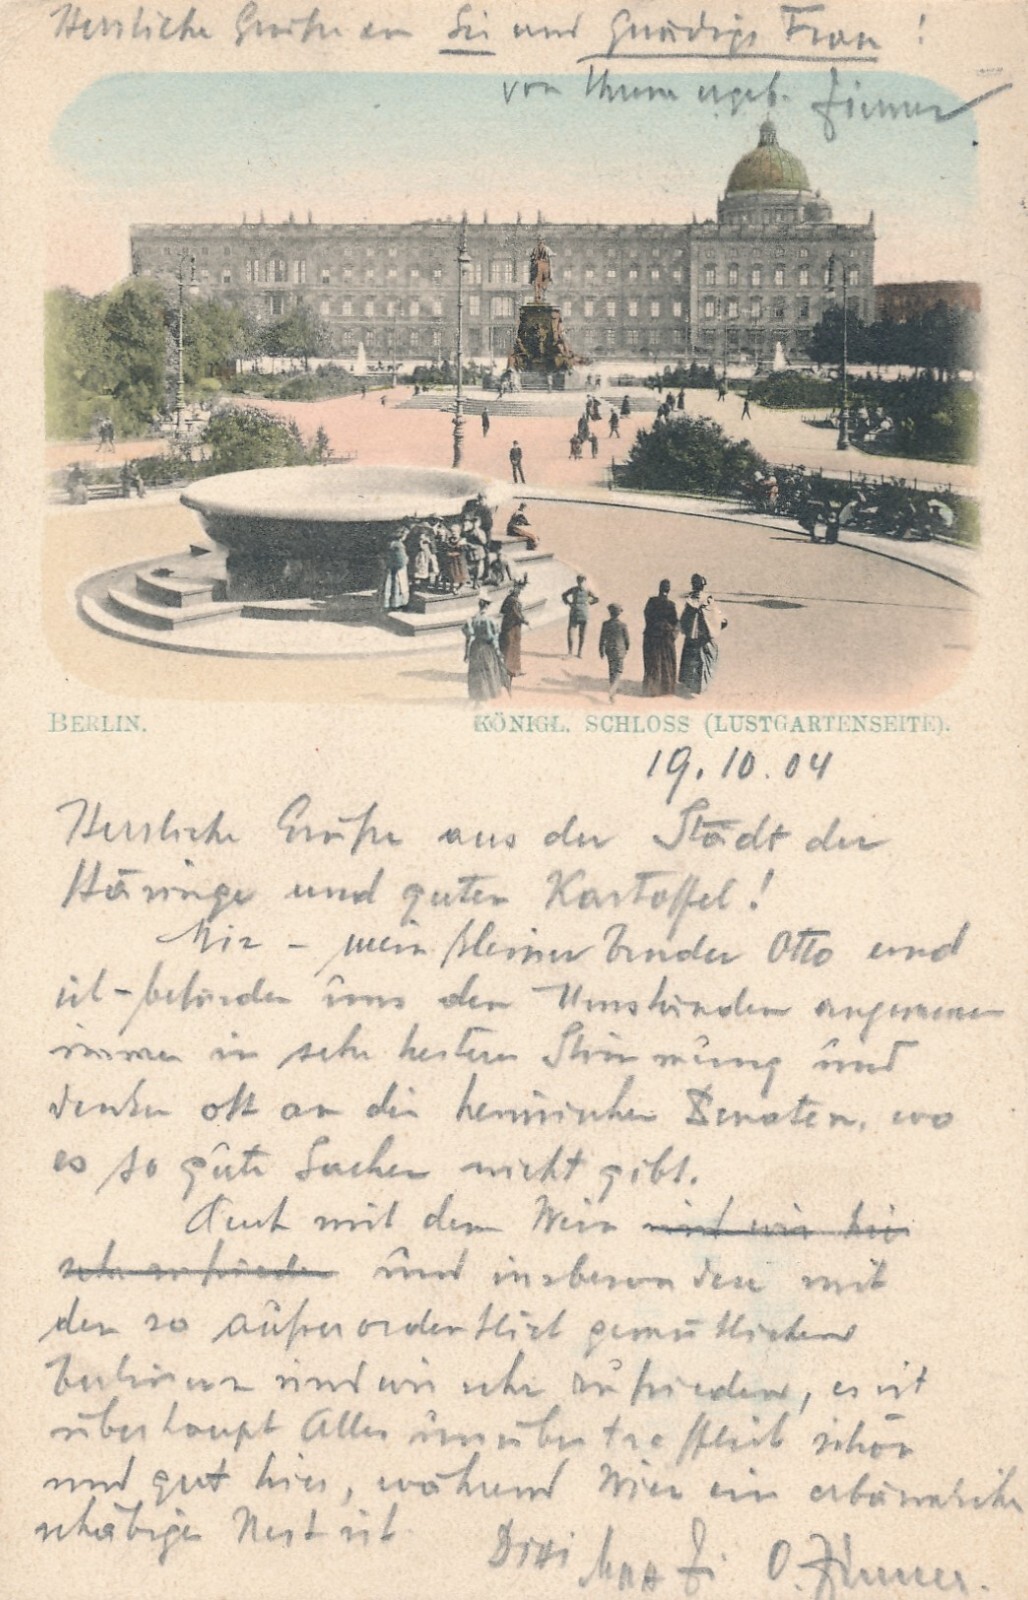 Herzliche Grüße an Sie und Gnädige Frau!
von Ihrem ergeb.
BERLIN. KÖNIGL. SCHLOSS (LUSTGARTENSEITE).
19.10.04
Herzliche Grüße aus der Stadt der
Häringe und guten Kartoffel!
Wir – mein kleiner Bruder Otto und
ich – befinden uns den Umständen angemessen
immer in sehr heiterer Stimmung und
denken oft an die heimischen Penaten, wo
es so gute Sachen nicht gibt.
Auch mit dem Wein sind wir hier
sehr zufrieden und insbesondere mit
den so außerordentlich gemütlichen
Berlinern sind wir sehr zufrieden, es ist
überhaupt Alles unübertrefflich schön
und gut hier, während Wien ein erbärmlich
schäbiges Nest ist.
Dixi O.